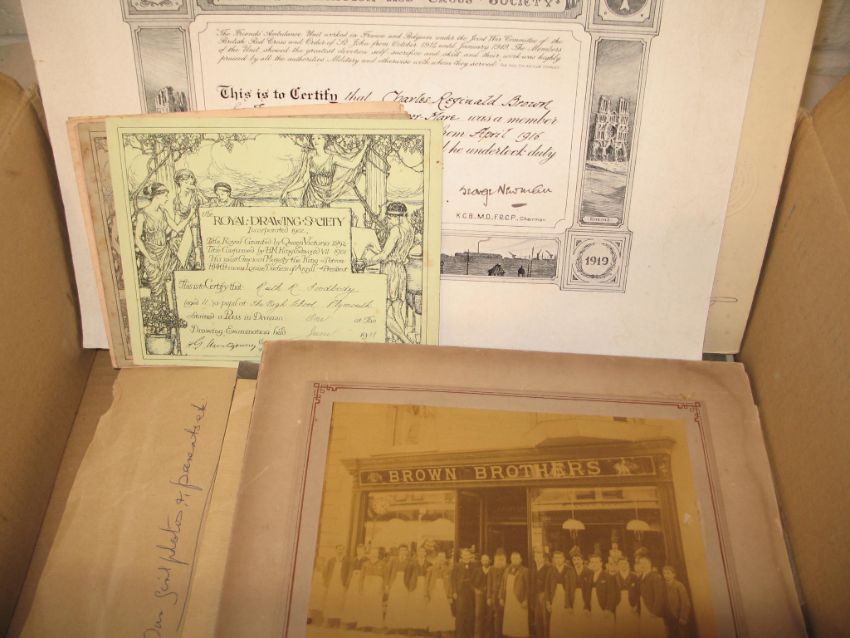 RED CROSS SOCIETY
The Friends' Ambulance Unit worked in France and Belgium under the Joint War Committee of the
British Red Cross and Order of St. John from October 1914 until January 1919. The Members
of the Unit showed the greatest devotion self sacrifice and skill and their work was highly
praised by all the authorities Military and otherwise with whom they served.
This is to Certify that Charles Reginald Brown
was a member
from April 1916
he undertook duty
George Newman
K.C.B., M.D., F.R.C.P., Chairman
1919
The
ROYAL DRAWING SOCIETY
Incorporated 1902
Title Royal Granted by Queen Victoria 1892
Title Confirmed by H.M. King Edward VII 1901
His most Gracious Majesty the King Patron
H.R.H. Princess Louise Duchess of Argyll President
This is to Certify that Ruth R.
aged 11, a pupil at The High School, Plymouth
obtained a Pass in Division One at The
Drawing Examination held June 1911
BROWN BROTHERS
photos &